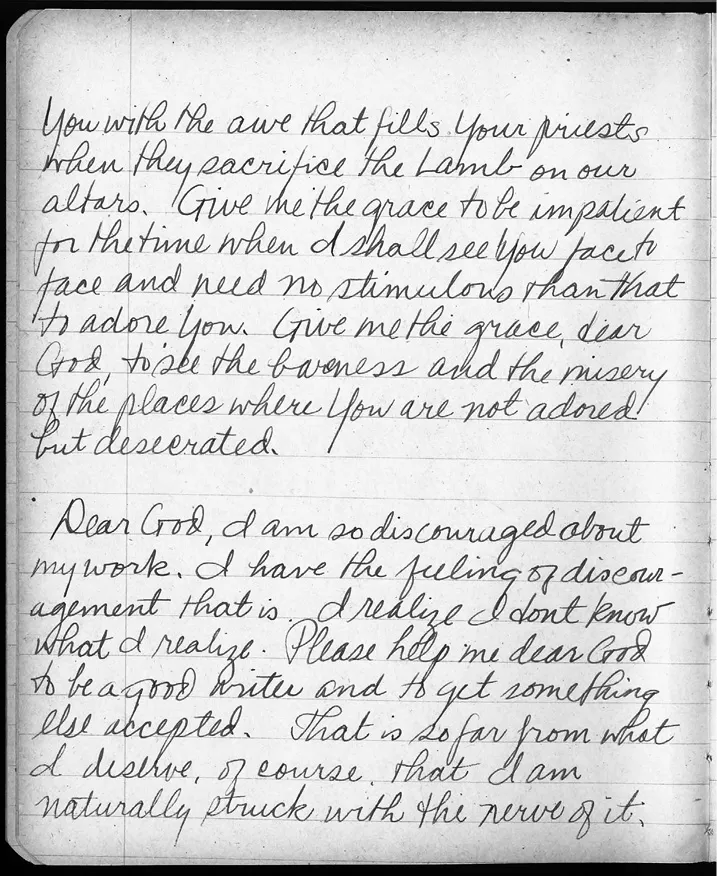 You with the awe that fills Your priests
when they sacrifice the Lamb on our
altars. Give me the grace to be impatient
for the time when I shall see You face to
face and need no stimulous than that
to adore You. Give me the grace, dear
God, to see the bareness and the misery
of the places where You are not adored
but desecrated.

Dear God, I am so discouraged about
my work. I have the feeling of discour-
agement that is. I realize I dont know
what I realize. Please help me dear God
to be a good writer and to get something
else accepted. That is so far from what
I deserve, of course, that I am
naturally struck with the nerve of it.